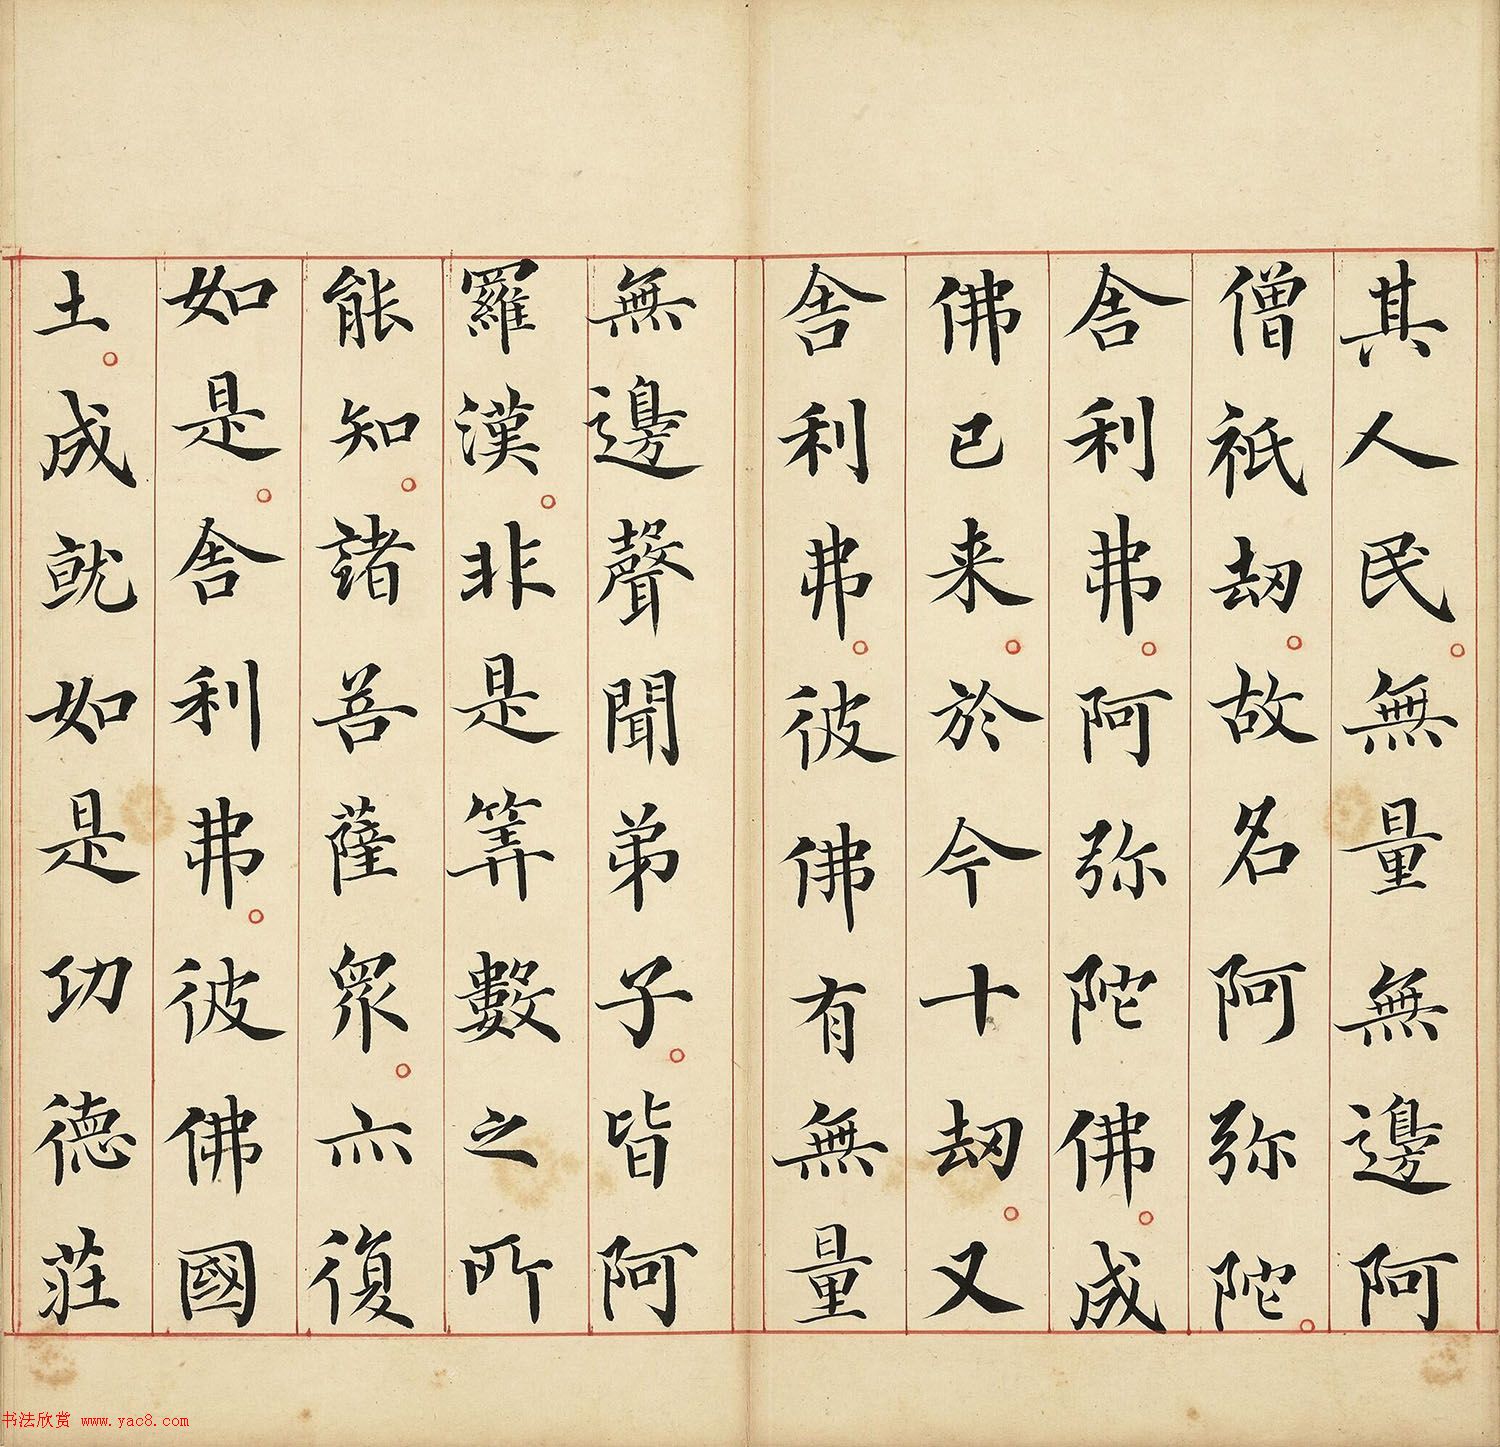 其人民。無量無邊阿
僧祇劫。故名阿弥陀。
舎利弗。阿弥陀佛。成
佛已来。於今十劫。又
舎利弗。彼佛有無量
無邊聲聞弟子。皆阿
羅漢。非是筭數之所
能知。諸菩薩眾。亦復
如是。舎利弗。彼佛國
土。成就如是功德莊
书法欣赏 www.yac8.com